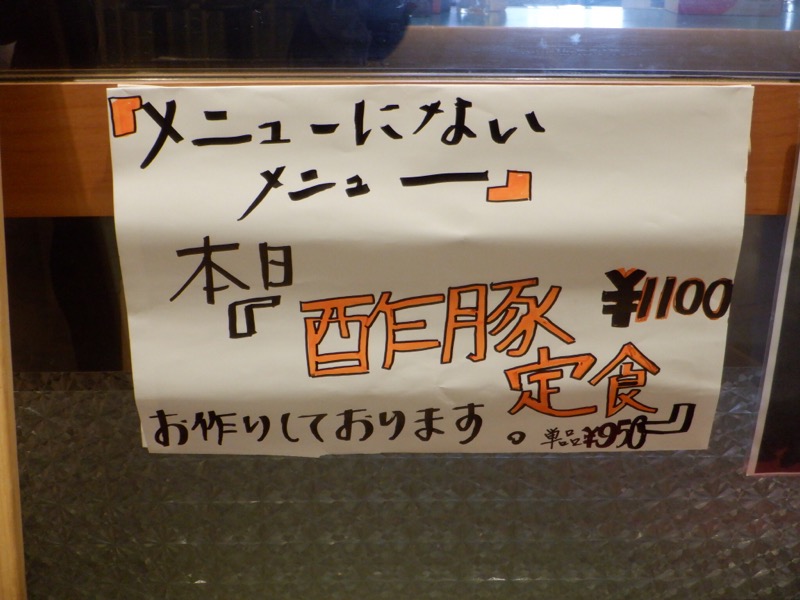 『メニューにない
メニュー』
本日
『酢豚 ¥1100
定食』
お作りしております。 単品¥950